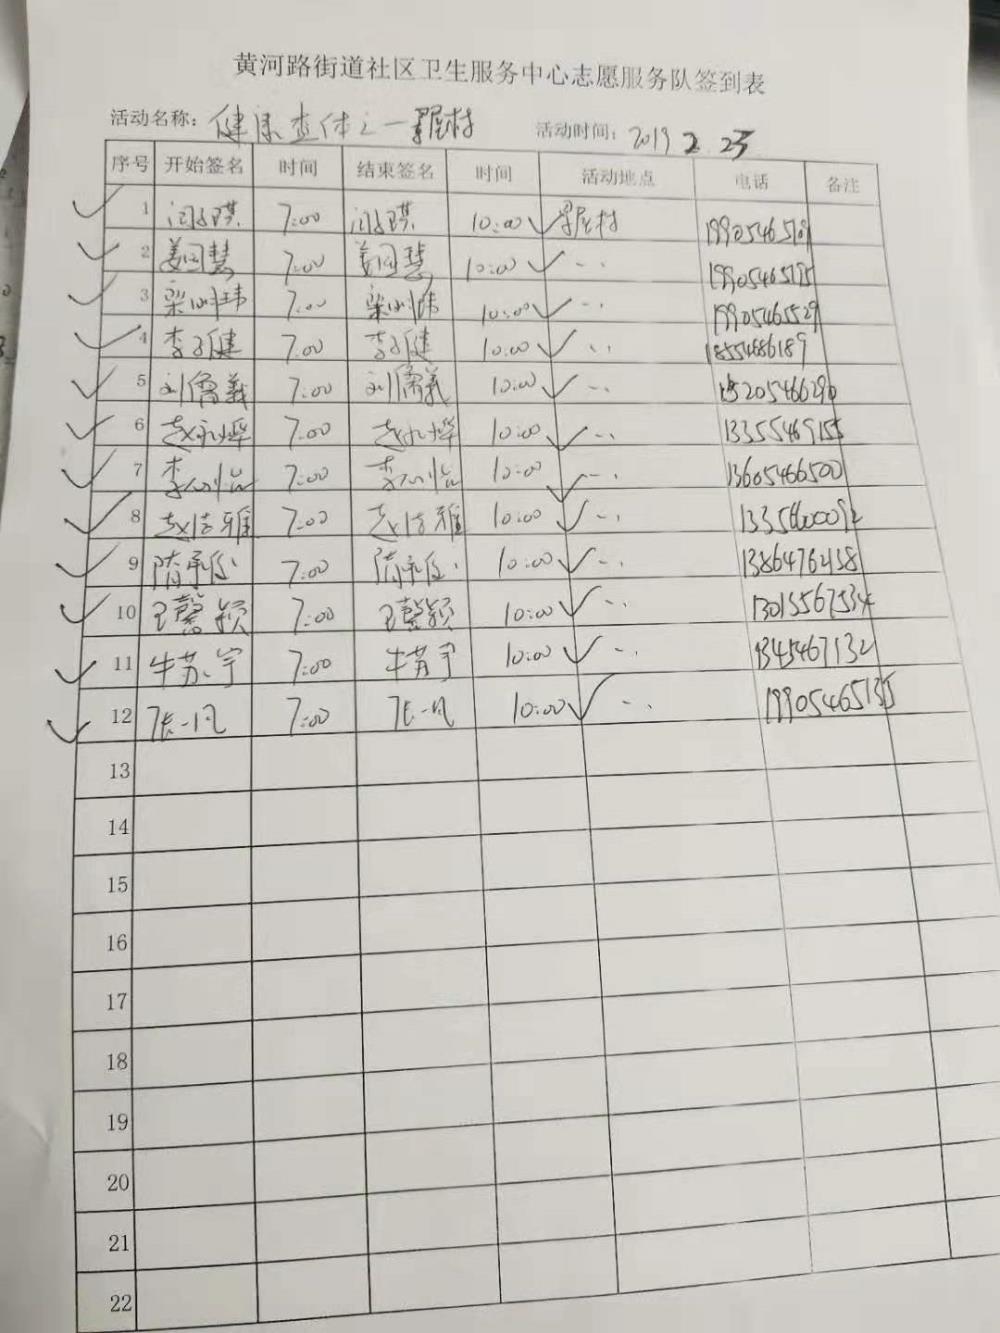 黄河路街道社区卫生服务中心志愿服务队签到表
活动名称：健康查体之一 活动时间：2019 2.23
序号 开始签名 时间 结束签名 时间 活动地点 电话 备注
1 7:00 10:00 19905465109
2 姜国慧 7:00 姜国慧 10:00 19905465195
3 7:00 10:00 19905465529
4 李子健 7:00 李子健 10:00 18554686189
5 刘儒義 7:00 刘儒義 10:00 15205466290
6 赵永烨 7:00 赵永烨 10:00 13355469155
7 李心怡 7:00 李心怡 10:00 13605466500
8 赵洁雅 7:00 赵洁雅 10:00
9 7:00 10:00 13864762458
10 王馨颖 7:00 王馨颖 10:00 13015567534
11 牛苏宇 7:00 牛苏宇 10:00
12 张一凡 7:00 张一凡 10:00 19905465135
13
14
15
16
17
18
19
20
21
22